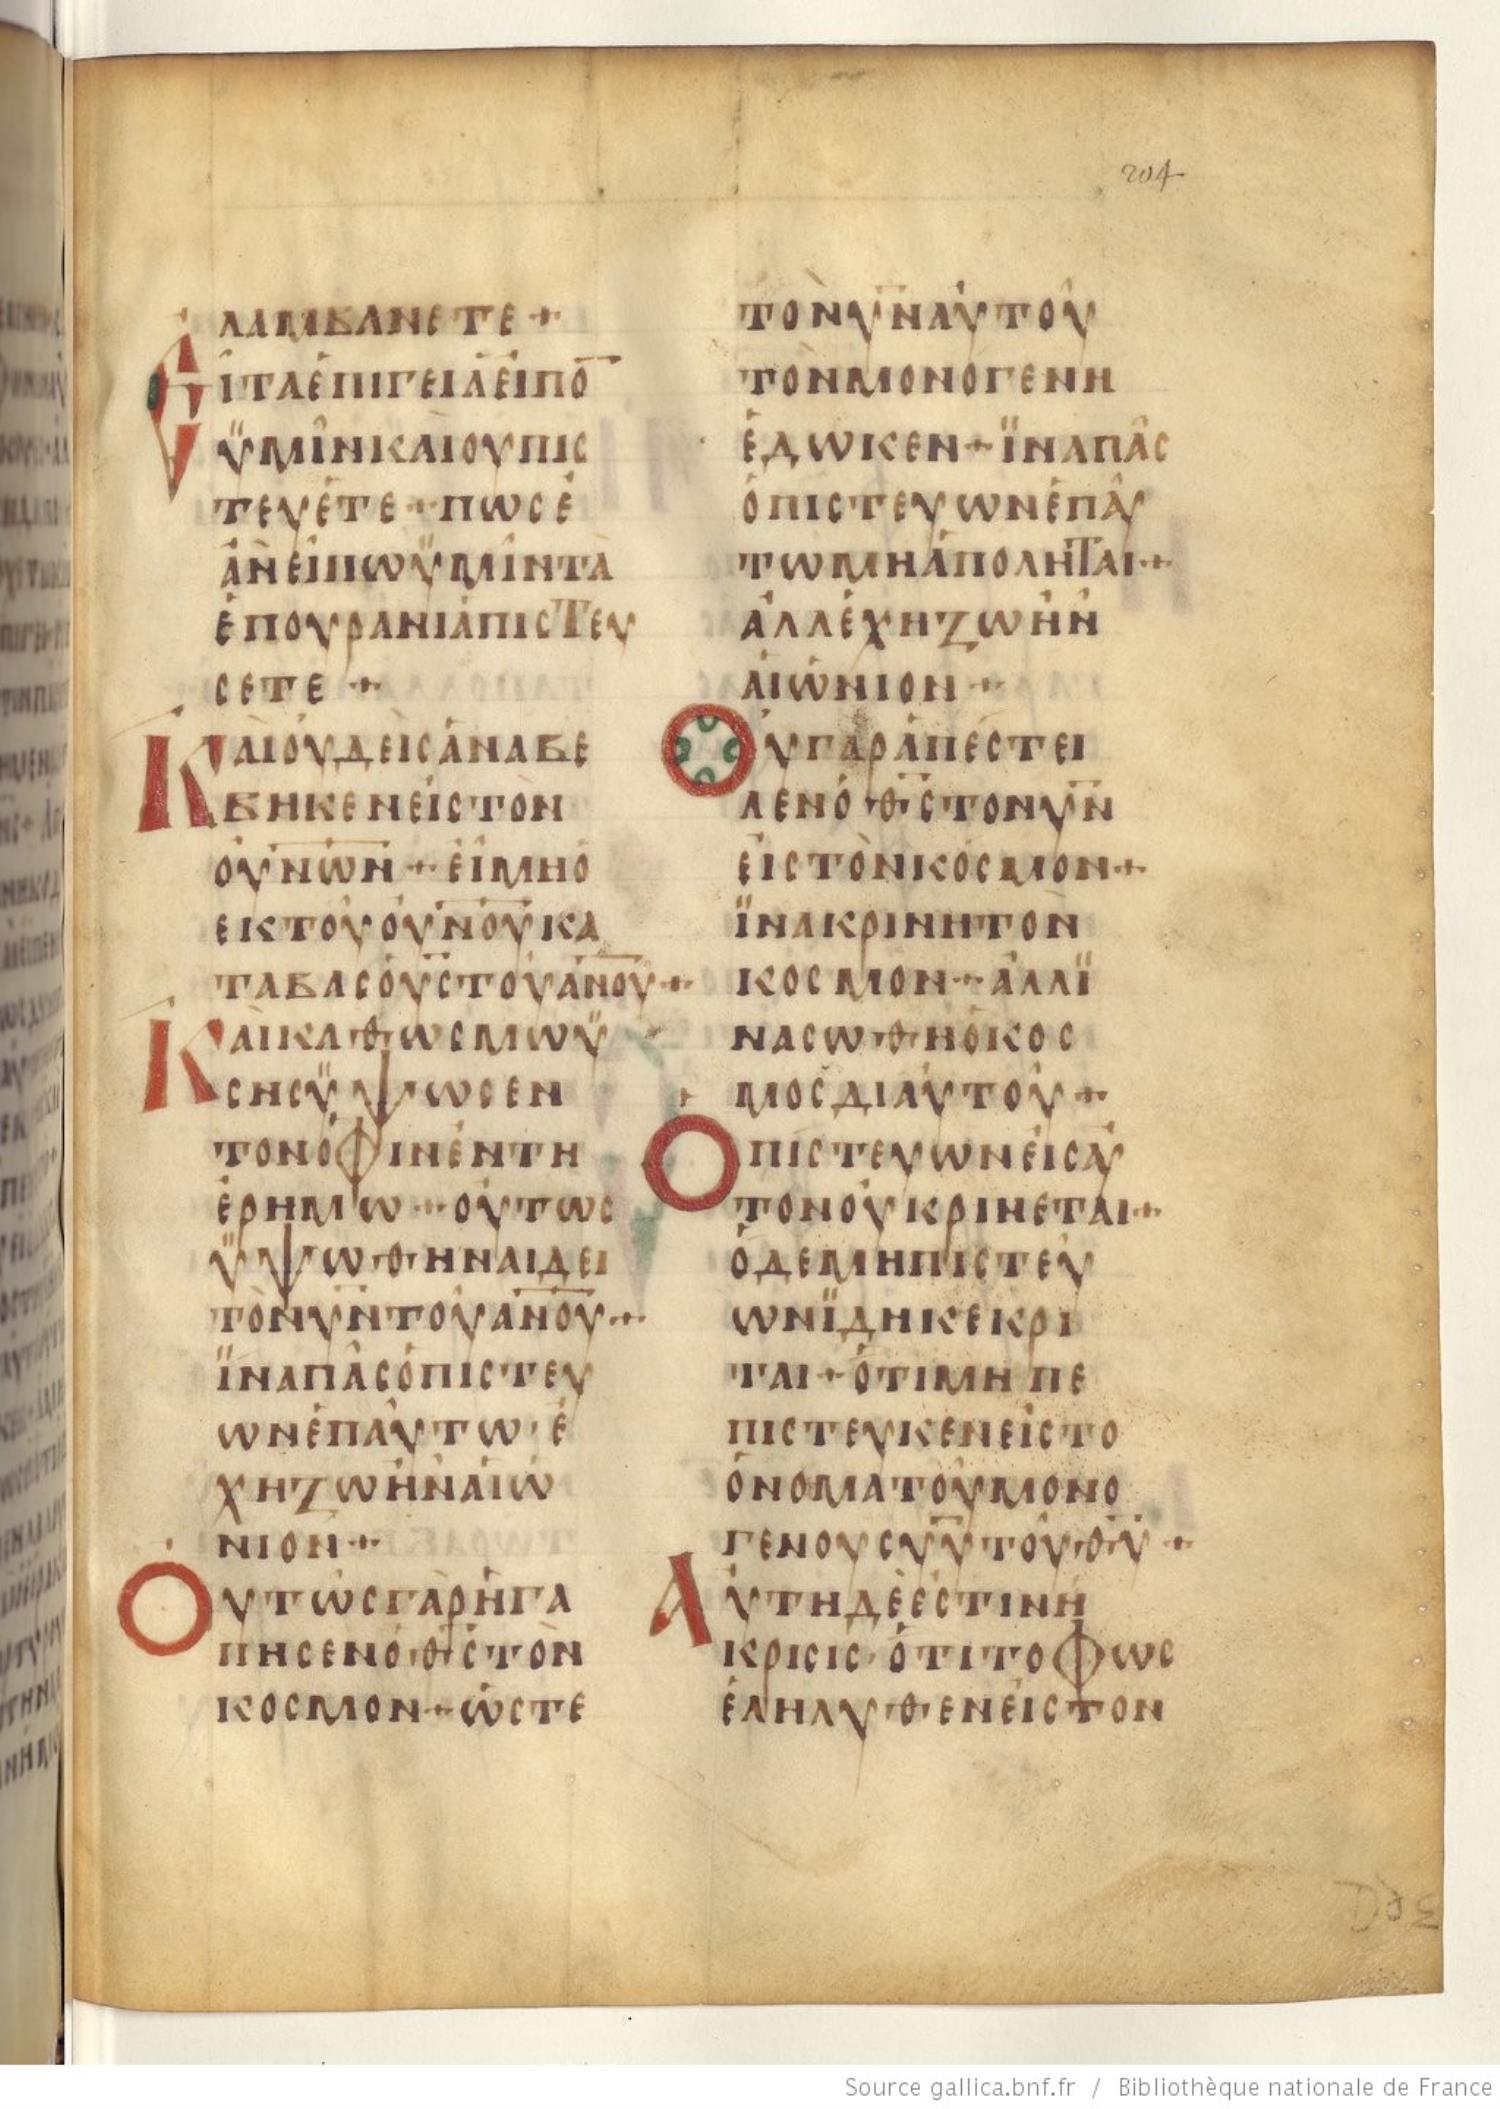 204
ΛΑΜΒΑΝΕΤΕ+
ΕΙΤΑΕΠΙΓΕΙΑΕΙΠΟ̅
ΫΜΙΝΚΑΙΟΥΠΙΣ
ΤΕΥΕΤΕ+ΠΩΣΕ
ΑΝΕΙΠΩΫΜΙΝΤΑ
ΕΠΟΥΡΑΝΙΑΠΙΣΤΕΥ
ΣΕΤΕ+
ΚΑΙΟΥΔΕΙΣΑΝΑΒΕ
ΒΗΚΕΝΕΙΣΤΟΝ
ΟΥΝ̅Ω̅Ν+ΕΙΜΗΟ
ΕΚΤΟΥΟΥΝ̅Ο̅ΥΚΑ
ΤΑΒΑΣΟΥ̅ΣΤΟΥΑΝ̅Ο̅Υ+
ΚΑΙΚΑΘΩΣΜΩΫ
ΣΗΣΫΨΩΣΕΝ
ΤΟΝΟΦΙΝΕΝΤΗ
ΕΡΗΜΩ+ΟΥΤΩΣ
ΫΨΩΘΗΝΑΙΔΕΙ
ΤΟΝΥ̅Ν̅ΤΟΥΑΝ̅Ο̅Υ+
ΪΝΑΠΑΣΟΠΙΣΤΕΥ
ΩΝΕΠΑΥΤΩ·Ε
ΧΗΖΩΗΝΑΙΩ
ΝΙΟΝ+
ΟΥΤΩΣΓΑΡΗΓΑ
ΠΗΣΕΝΟΘ̅Σ̅ΤΟΝ
ΚΟΣΜΟΝ+ΩΣΤΕ
ΤΟΝΥ̅Ν̅ΑΥΤΟΥ
ΤΟΝΜΟΝΟΓΕΝΗ
ΕΔΩΚΕΝ+ΪΝΑΠΑΣ
ΟΠΙΣΤΕΥΩΝΕΠΑΥ
ΤΩΜΗΑΠΟΛΗΤΑΙ+
ΑΛΛΕΧΗΖΩΗΝ
ΑΙΩΝΙΟΝ+
ΟΥΓΑΡΑΠΕΣΤΕΙ
ΛΕΝΟΘ̅Σ̅ΤΟΝΥ̅Ν̅
ΕΙΣΤΟΝΚΟΣΜΟΝ+
ΪΝΑΚΡΙΝΗΤΟΝ
ΚΟΣΜΟΝ+ΑΛΛΪ
ΝΑΣΩΘΗΟΚΟΣ
ΜΟΣΔΙΑΥΤΟΥ+
ΟΠΙΣΤΕΥΩΝΕΙΣΑΥ
ΤΟΝΟΥΚΡΙΝΕΤΑΙ+
ΟΔΕΜΗΠΙΣΤΕΥ
ΩΝΪΔΗΚΕΚΡΙ
ΤΑΙ+ΟΤΙΜΗΠΕ
ΠΙΣΤΕΥΚΕΝΕΙΣΤΟ
ΟΝΟΜΑΤΟΥΜΟΝΟ
ΓΕΝΟΥΣΥ̅Υ̅ΤΟΥΘ̅Υ̅+
ΑΥΤΗΔΕΕΣΤΙΝΗ
ΚΡΙΣΙΣ·ΟΤΙΤΟΦΩΣ
ΕΛΗΛΥΘΕΝΕΙΣΤΟΝ
Source gallica.bnf.fr / Bibliothèque nationale de France